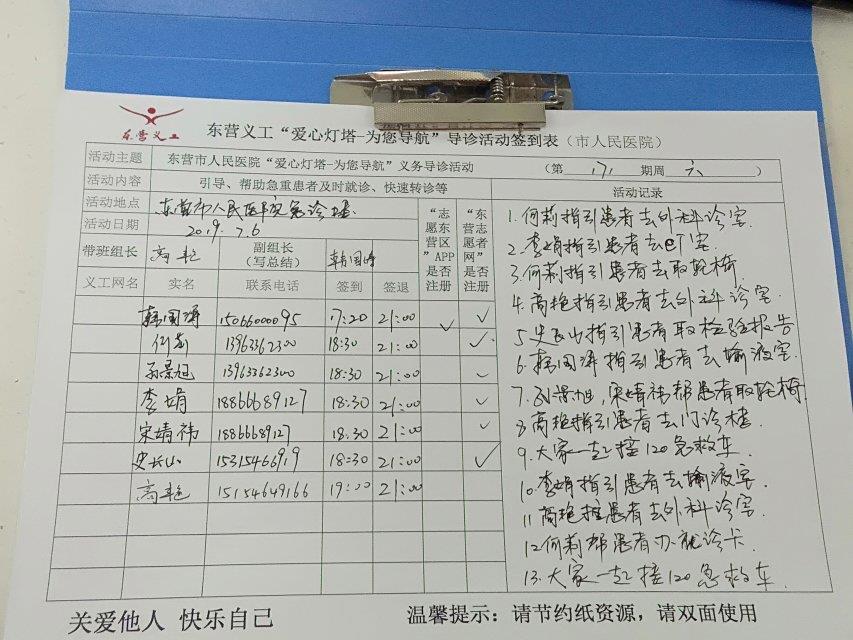 东营义工
东营义工“爱心灯塔-为您导航”导诊活动签到表（市人民医院）
活动主题 东营市人民医院“爱心灯塔-为您导航”义务导诊活动 （第 171 期周 六 ）
活动内容 引导、帮助急重患者及时就诊、快速转诊等
活动地点 东营市人民医院急诊楼
活动日期 2019.7.6
“志愿东营区”APP是否注册
“东营志愿者网”是否注册
活动记录
带班组长 高艳 副组长（写总结） 韩国涛
义工网名 实名 联系电话 签到 签退
韩国涛 15066000095 17:20 21:00 ✓ ✓
何莉 13963362300 18:30 21:00 ✓
孙景旭 13963362300 18:30 21:00 ✓
李娟 18866689127 18:30 21:00 ✓
宋婧祎 18866689127 18:30 21:00 ✓
史长山 15315466919 18:30 21:00 ✓
高艳 15154649166 19:00 21:00
1.何莉指引患者去外科诊室
2.李娟指引患者去CT室
3.何莉指引患者去取轮椅
4.高艳指引患者去外科诊室
5.史长山指引患者取检验报告
6.韩国涛指引患者去输液室.
7.孙景旭,宋婧祎帮患者取轮椅
8.高艳指引患者去门诊楼.
9.大家一起接120急救车.
10.李娟指引患者去输液室.
11高艳指患者去外科诊室
12何莉帮患者办就诊卡
13.大家一起接120急救车
关爱他人 快乐自己
温馨提示：请节约纸资源，请双面使用